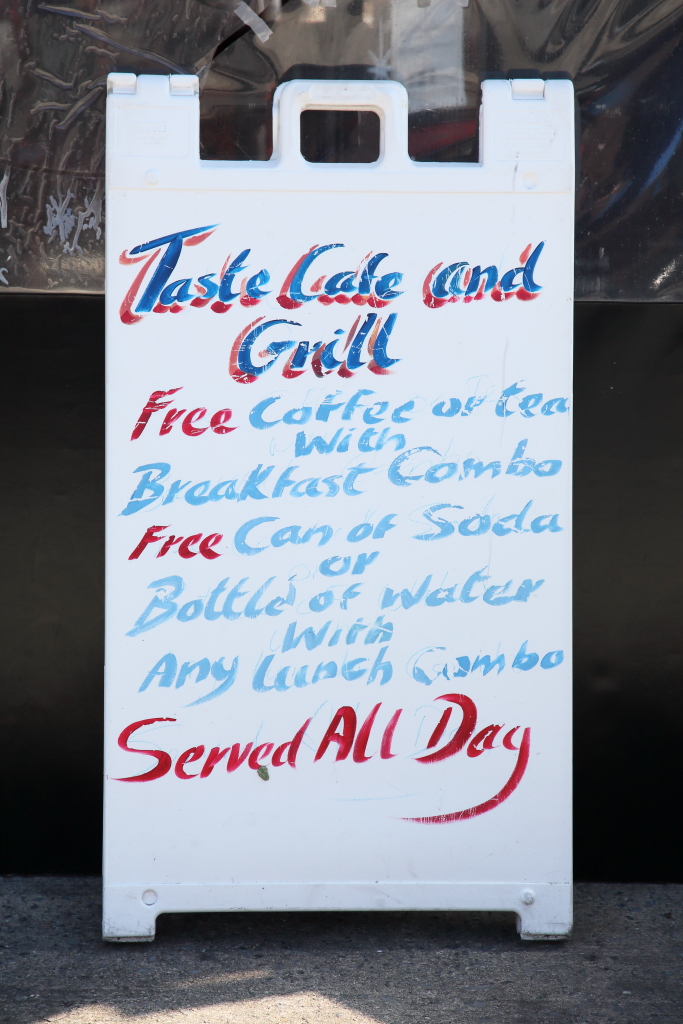 Taste Cafe and
Grill
Free Coffee or tea
With
Breakfast Combo
Free Can of Soda
or
Bottle of water
With
Any Lunch Combo
Served All Day